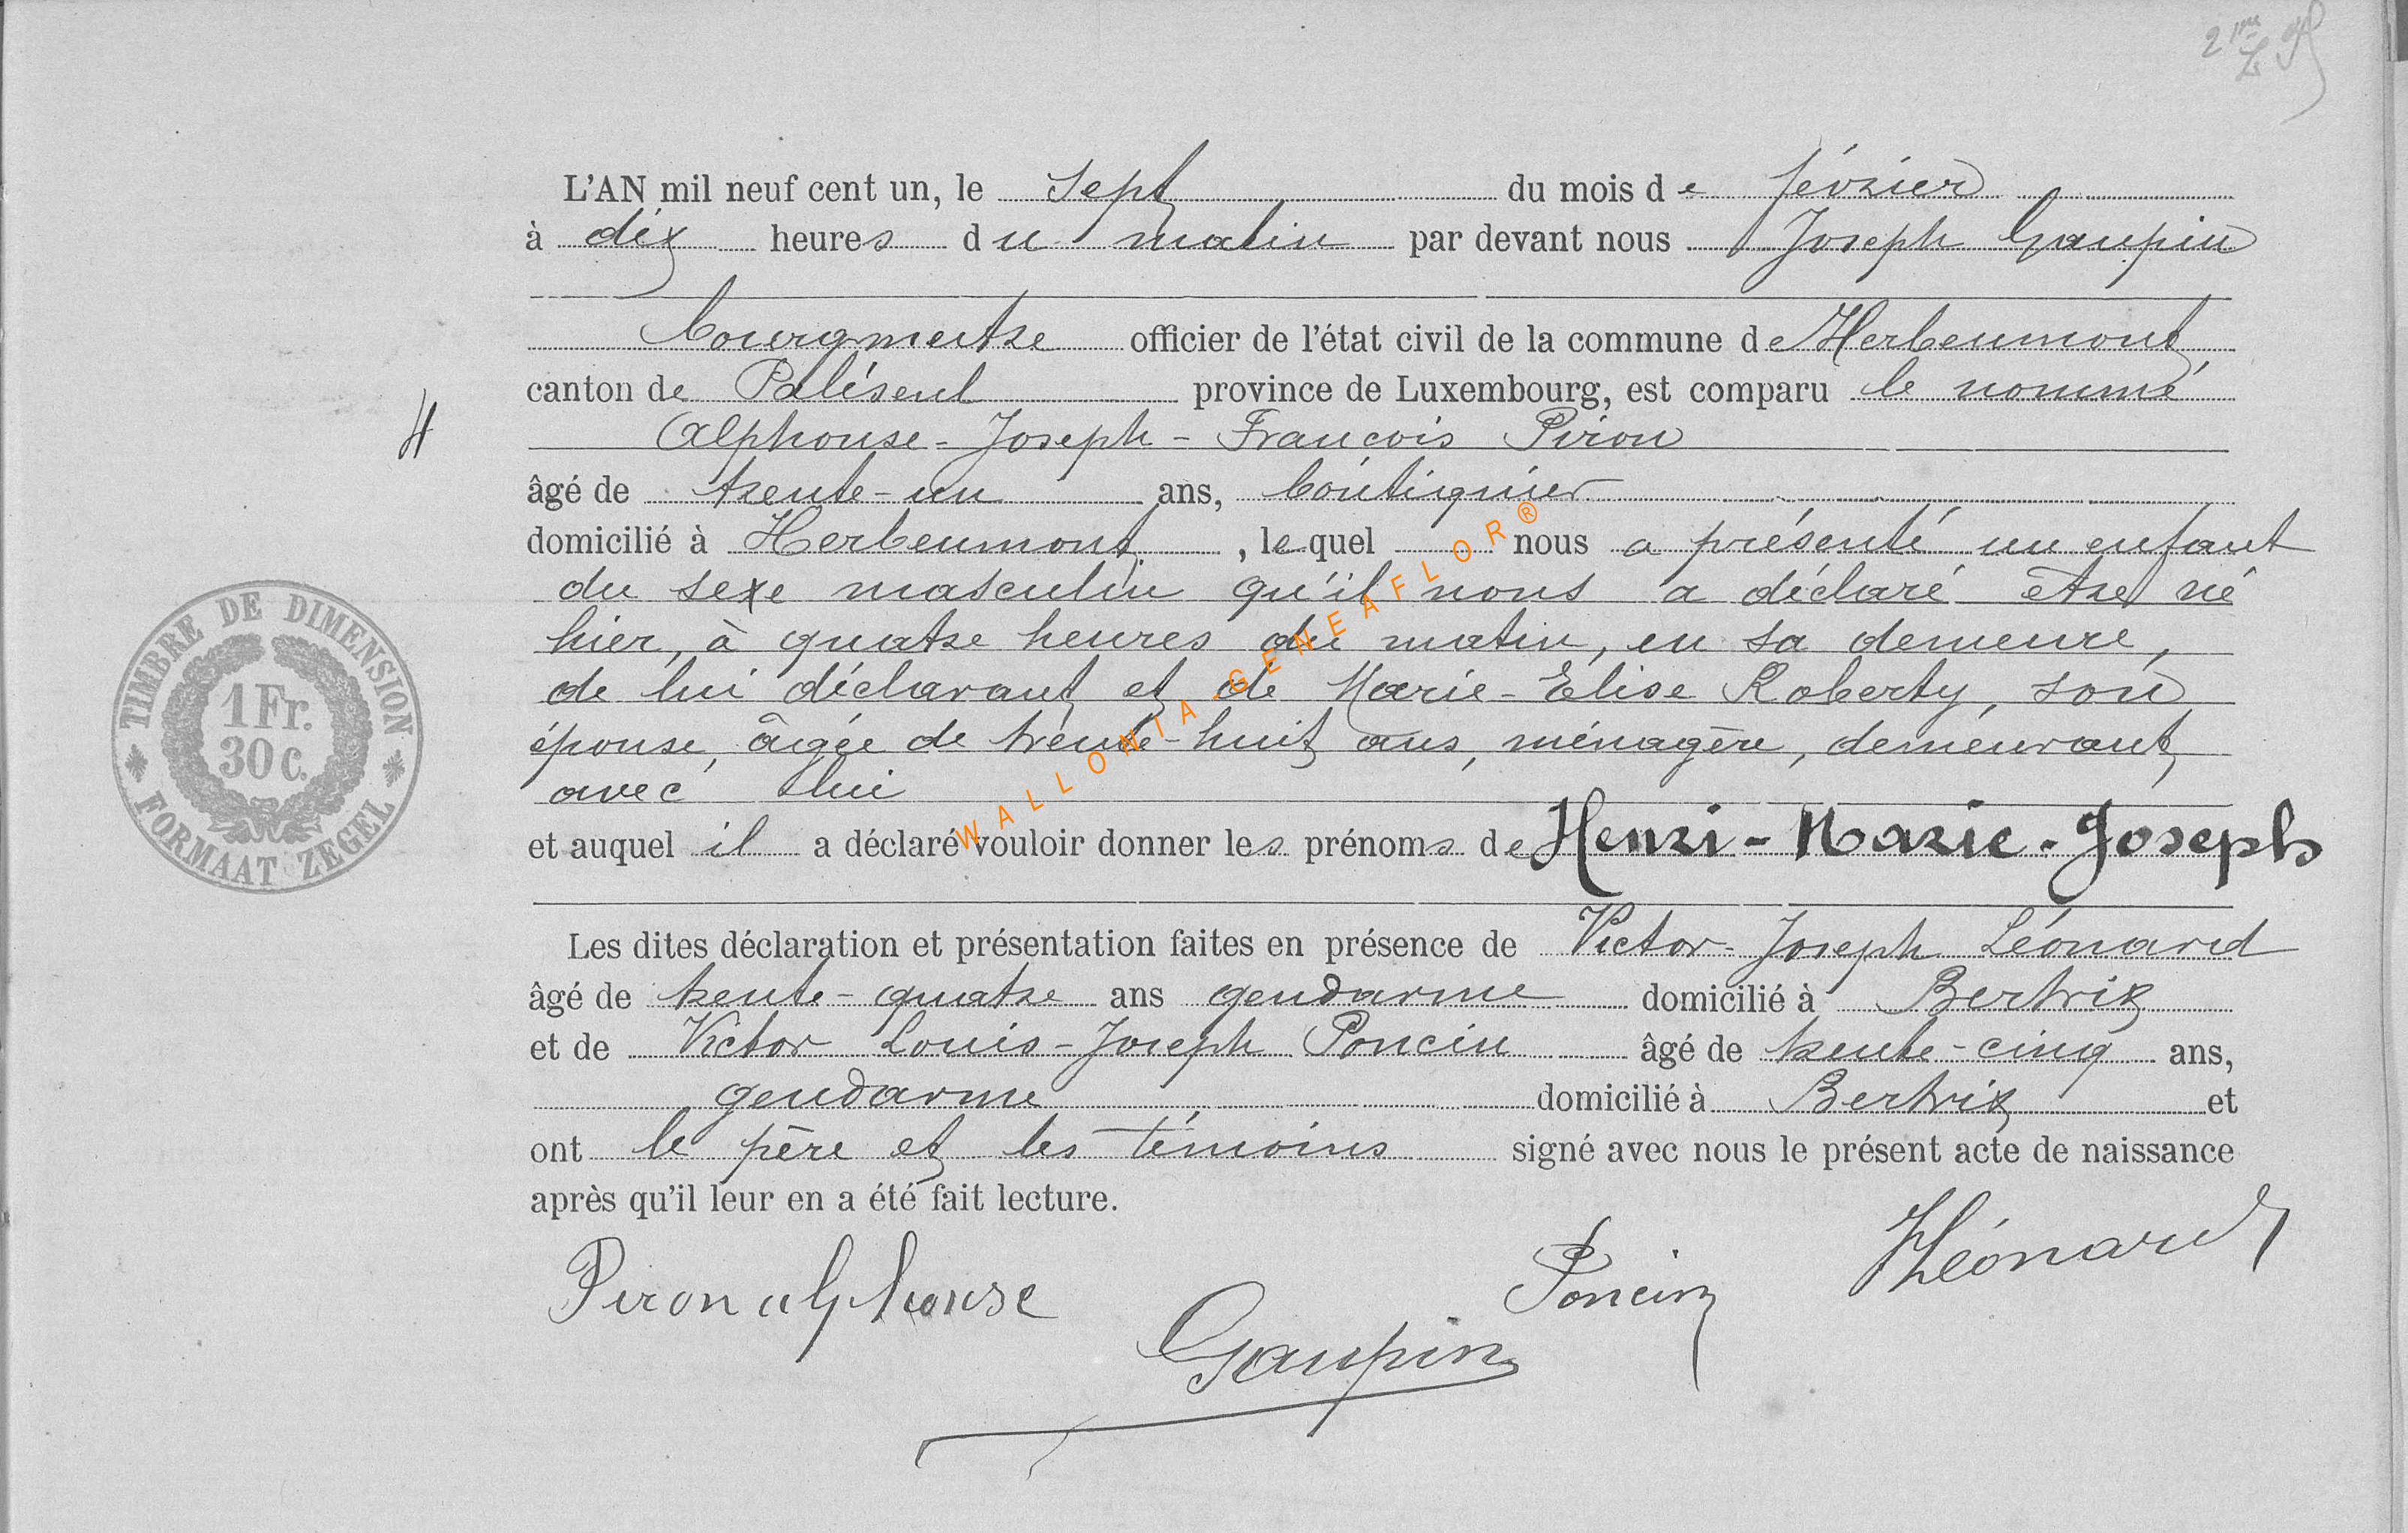 2me
L'AN mil neuf cent un, le sept du mois de février
à dix heures du matin par devant nous Joseph Gaupin
bourgmestre officier de l'état civil de la commune de Herbeumont
canton de Paliseul province de Luxembourg, est comparu le nommé
4
Alphonse-Joseph-François Piron
âgé de trente-un ans, boutiquier
domicilié à Herbeumont, lequel nous a présenté un enfant
du sexe masculin qu'il nous a déclaré être né
hier, à quatre heures du matin, en sa demeure,
de lui déclarant et de Marie-Elise Roberty, son
épouse, âgée de trente-huit ans, ménagère, demeurant
avec lui
et auquel il a déclaré vouloir donner les prénoms de Henri-Marie-Joseph
Les dites déclaration et présentation faites en présence de Victor-Joseph Léonard
âgé de trente-quatre ans gendarme domicilié à Bertrix
et de Victor Louis-Joseph Poncin âgé de trente-cinq ans,
gendarme domicilié à Bertrix et
ont le père et les témoins signé avec nous le présent acte de naissance
après qu'il leur en a été fait lecture.
Piron alphonse
Poncin
VLéonard
Gaupin
TIMBRE DE DIMENSION
1 Fr.
30 c.
FORMAAT ZEGEL
WALLONIA-GENEAFLOR®